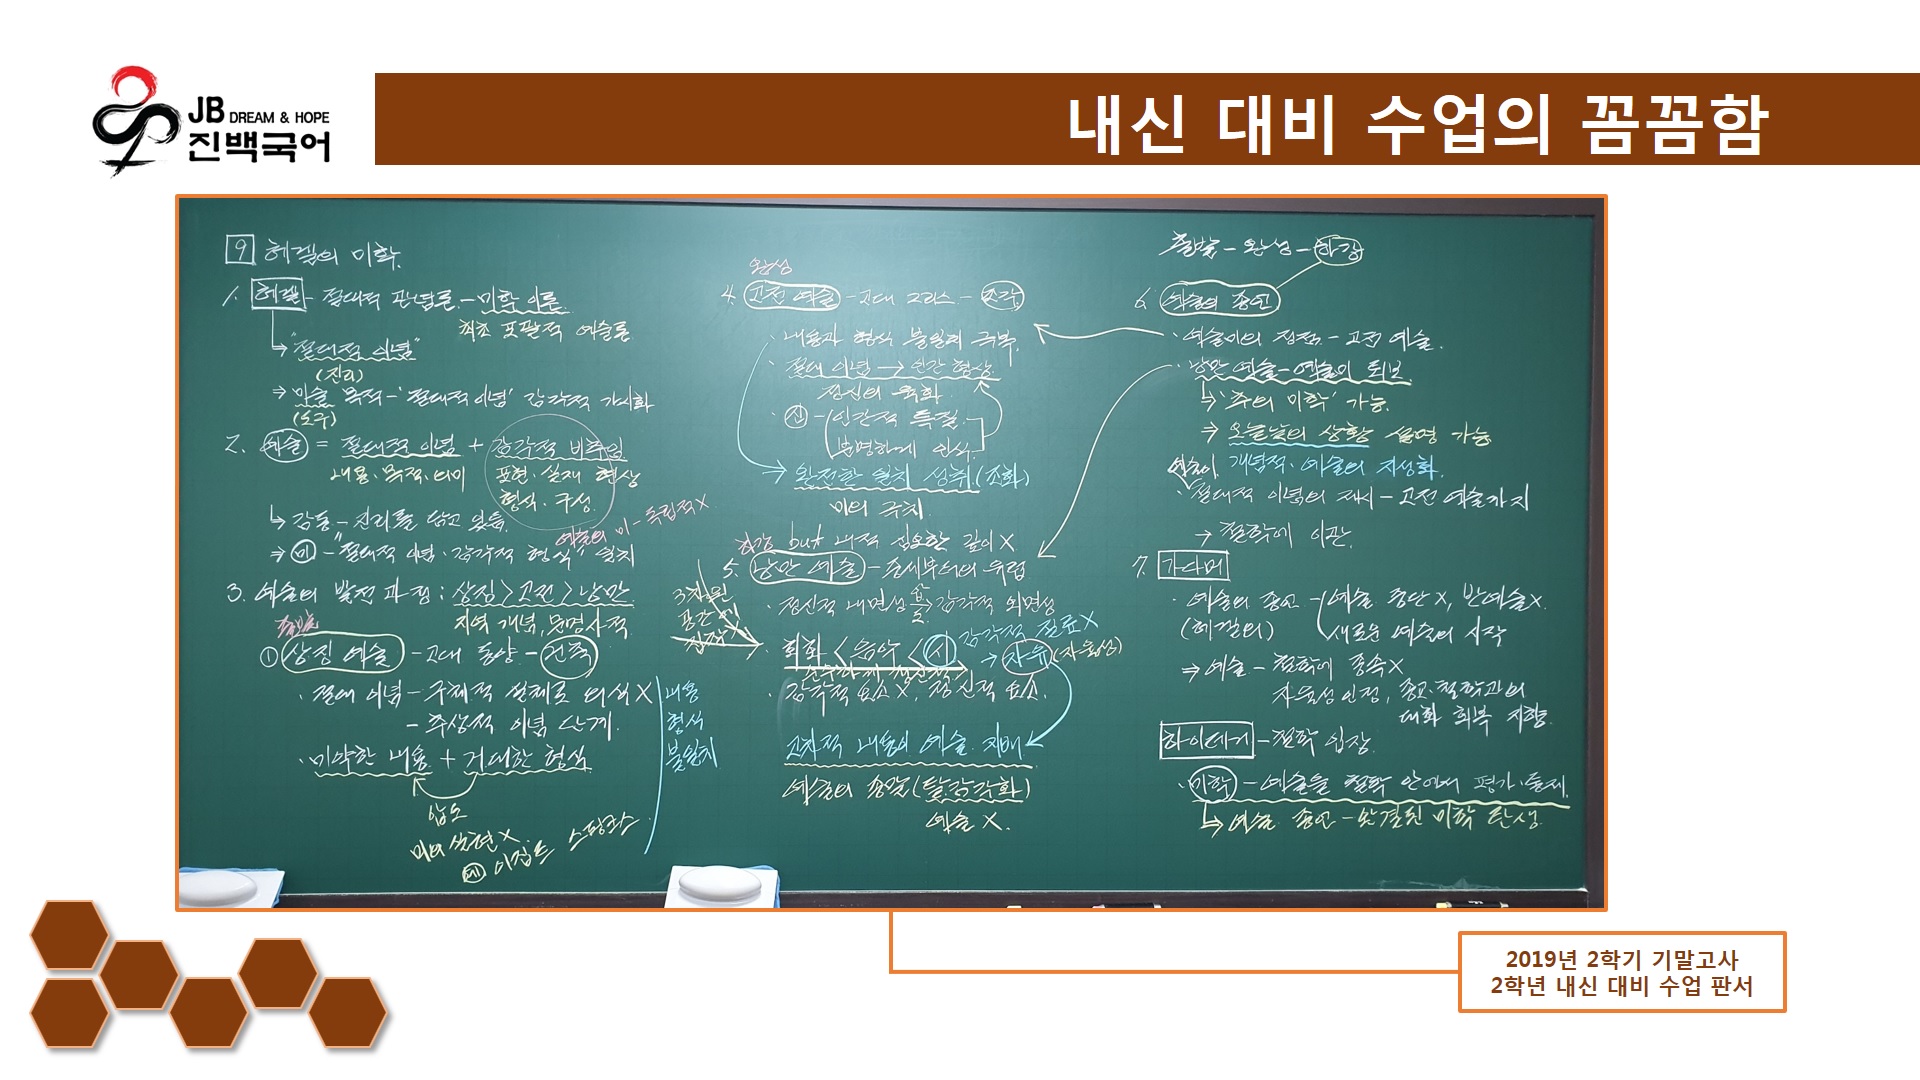 JB DREAM & HOPE
진백국어
내신 대비 수업의 꼼꼼함
9 헤겔의 미학.
1. 헤겔 - 절대적 관념론 - 미학 이론.
최초 포괄적 예술론
"절대적 이념"
(진리)
⇒ 미술 목적 - '절대적 이념' 감각적 가시화
(도구)
2. 예술 = 절대적 이념 + 감각적 비추임
내용·목적·의미 표현·실재 형상
형식·구성
↳ 감동 - 진리를 담고 있음.
예술의 미 - 독립적 X
⇒ 미 - "절대적 이념·감각적 형식" 일치
3. 예술의 발전 과정 : 상징 > 고전 > 낭만
출발 지역 개념, 문명사적
① 상징 예술 - 고대 동양 - 건축
· 절대 이념 - 구체적 실체로 의식 X
- 추상적 이념 단계.
· 미약한 내용 + 거대한 형식
내용
형식
불일치
압도
미의 실현 X
예 이집트 스핑크스
완성
4. 고전 예술 - 고대 그리스 - 조각
· 내용과 형식 불일치 극복.
· 절대 이념 → 인간 형상
정신의 육화
· 신 - 인간적 특질
분명하게 인식
→ 완전한 일치 성취 (조화)
미의 극치
하강 but 내적 심오한 깊이 X
5. 낭만 예술 - 중세부터의 유럽
· 정신적 내면성 > 감각적 외면성
3차원
공간
감각적 질료 X
· 회화 < 음악 < 시 → 자유 (자율성)
· 감각적 요소 X, 정신적 요소.
고차적 내용이 예술 지배
예술의 종말 (탈감각화)
예술 X.
출발 - 완성 - 하강
6. 예술의 종언
· 예술미의 정점 - 고전 예술.
· 낭만 예술 - 예술의 퇴보
↳ '추의 미학' 가능.
⇒ 오늘날의 상황 설명 가능
개념적·예술의 지성화.
· 절대적 이념의 제시 - 고전 예술까지
→ 철학에 이관.
7. 가다머
· 예술의 종언 - 예술 중단 X, 반예술 X.
(헤겔의) 새로운 예술의 시작
⇒ 예술 - 철학에 종속 X
자율성 인정, 종교·철학과의
대화 회복 지향.
하이데거 - 철학 입장.
· 미학 - 예술을 철학 안에서 평가·통제.
↳ 예술 종언 - 완결된 미학 탄생.
2019년 2학기 기말고사
2학년 내신 대비 수업 판서